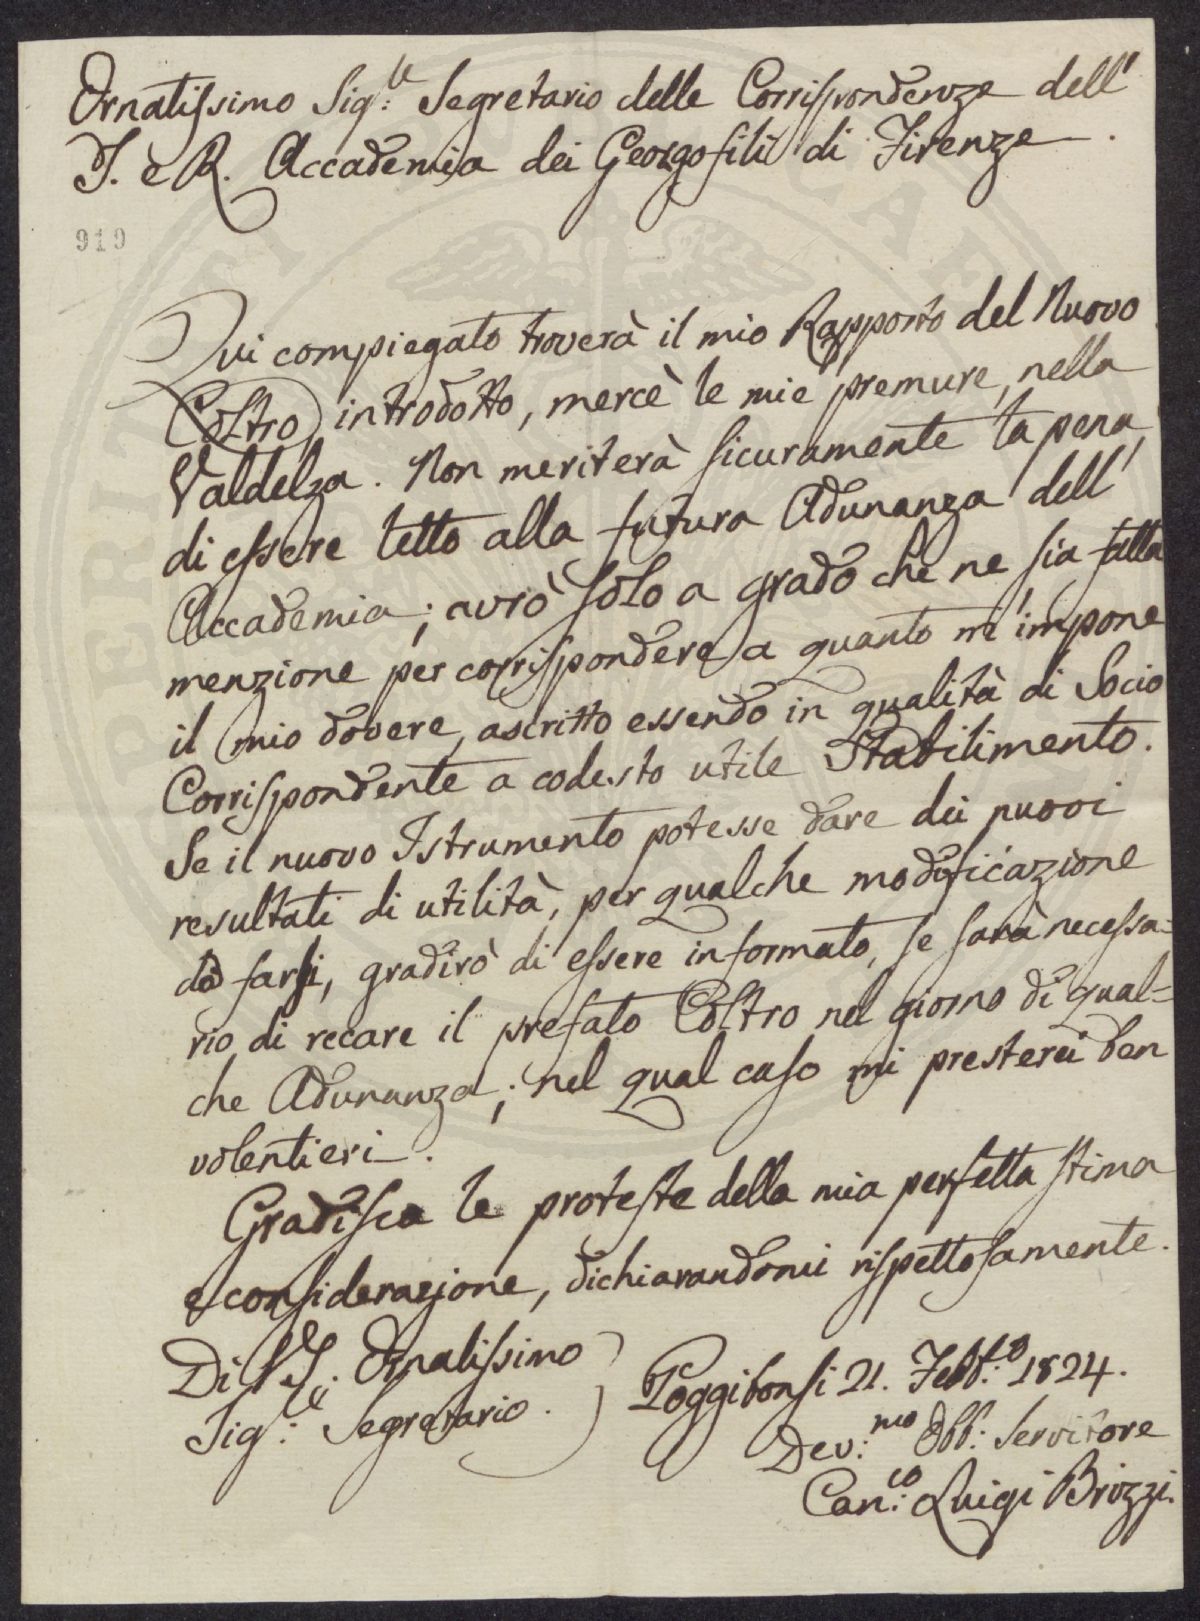 Ornatissimo Sig:le Segretario delle Corrispondenze dell'
I. e R. Accademia dei Georgofili di Firenze.
919
Qui compiegato troverà il mio Rapporto del Nuovo
Coltro introdotto, mercè le mie premure, nella
Valdelsa. Non meriterà sicuramente la pena,
di essere letto alla futura Adunanza dell'
Accademia; avrò solo a grado che ne sia fatta
menzione per corrispondere a quanto m'impone
il mio dovere, ascritto essendo in qualità di Socio
Corrispondente a codesto utile Stabilimento.
Se il nuovo Istrumento potesse dare dei nuovi
resultati di utilità, per qualche modificazione
da farsi, gradirò di essere informato, se sarà necessa=
rio di recare il prefato Coltro nel giorno di qual=
che Adunanza; nel qual caso mi presterei ben
volentieri.
Gradisca le proteste della mia perfetta stima
e considerazione, dichiarandomi rispettosamente.
Di V. S. Ornatissimo
Sig:le Segretario.
Poggibonsi 21. Febb:o 1824.
Dev:mo Obb: Servitore
Can:co Luigi Brizzi.